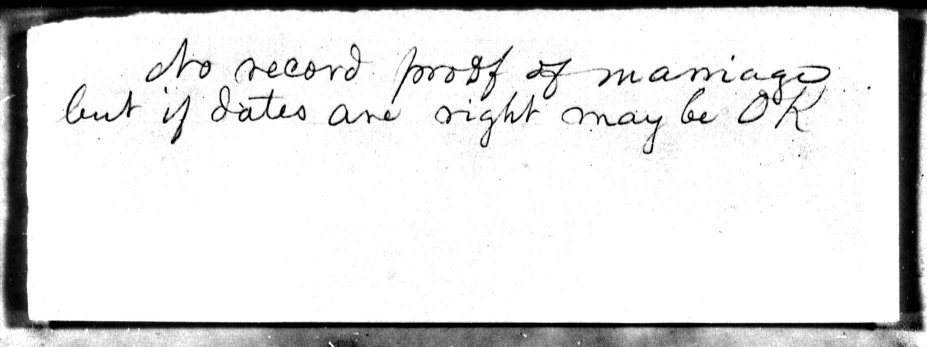 No record proof of marriage
but if dates are right may be OK